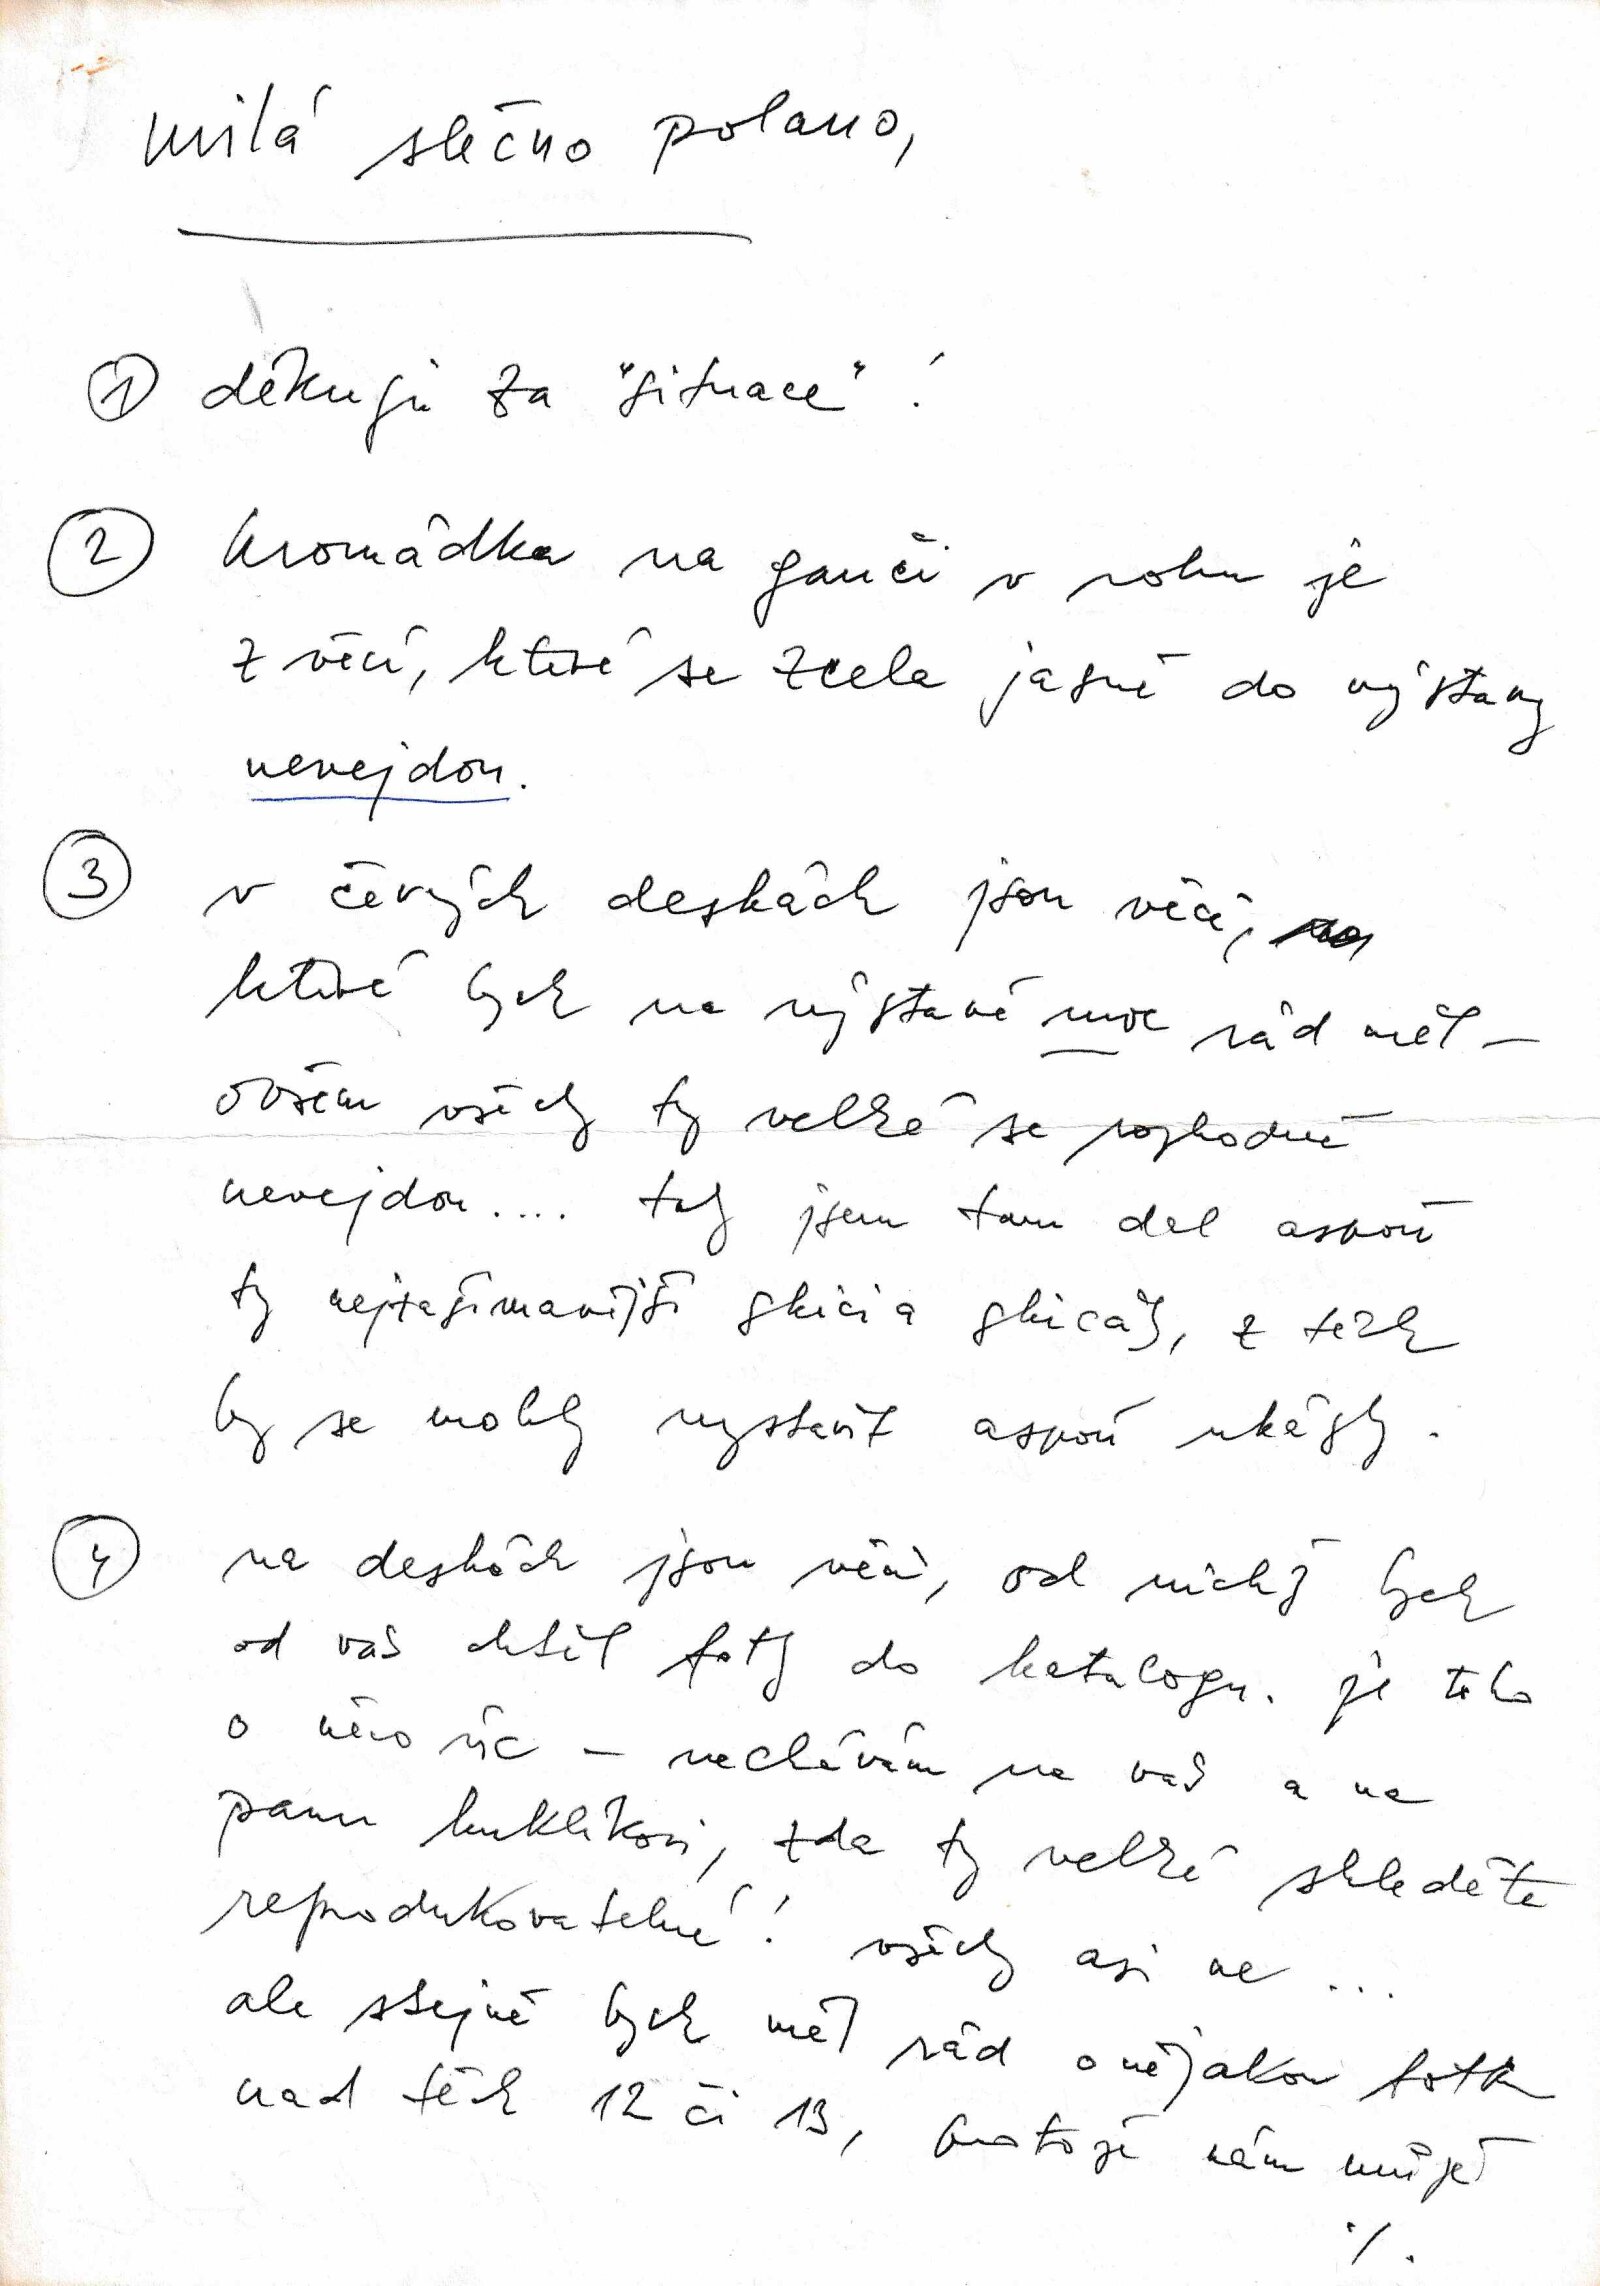 milá slečno polano,
① děkuju za "situace"!
② hromádka na gauči v rohu je
z věcí, které se zcela jasně do výstavy
nevejdou.
③ v černých deskách jsou věci,
které bych na výstavě moc rád měl –
ovšem všechy ty velké se rozhodně
nevejdou.... tak jsem tam dal aspoň
ty nejzajímavější skici a skicáky, z těch
by se mohly vystavit aspoň ukázky.
④ na deskách jsou věci, od nichž bych
od vás chtěl fotky do katalogu. je toho
o něco víc – nechávám na vás a na
panu kuklíkovi, zda ty velké shledáte
reprodukovatelné! všechy asi ne ...
ale stejně bych měl rád o nějakou fotku
nad těch 12 či 13, protože nám může
./.